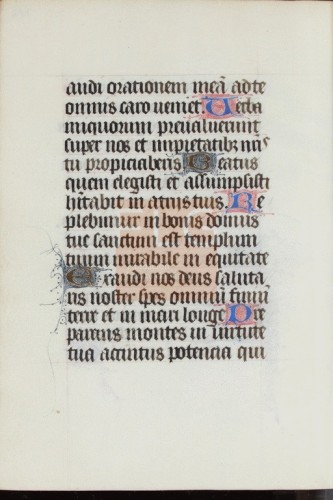 audi orationem meā ad te
omnis caro veniet. Verba
iniquorum prevaluerunt
super nos et impietatibꝫ nr̄is
tu propiciaberis Beatus
quem elegisti et assumpsisti
hītabit in atriis tuis. Re
plebimur in bonis domus
tue sanctum est templum
tuum mirabile in equitate
Exaudi nos deus saluta
ris noster spes omniū finiū
terre et in mari longe Pre
parens montes in virtute
tua accintus potencia qui